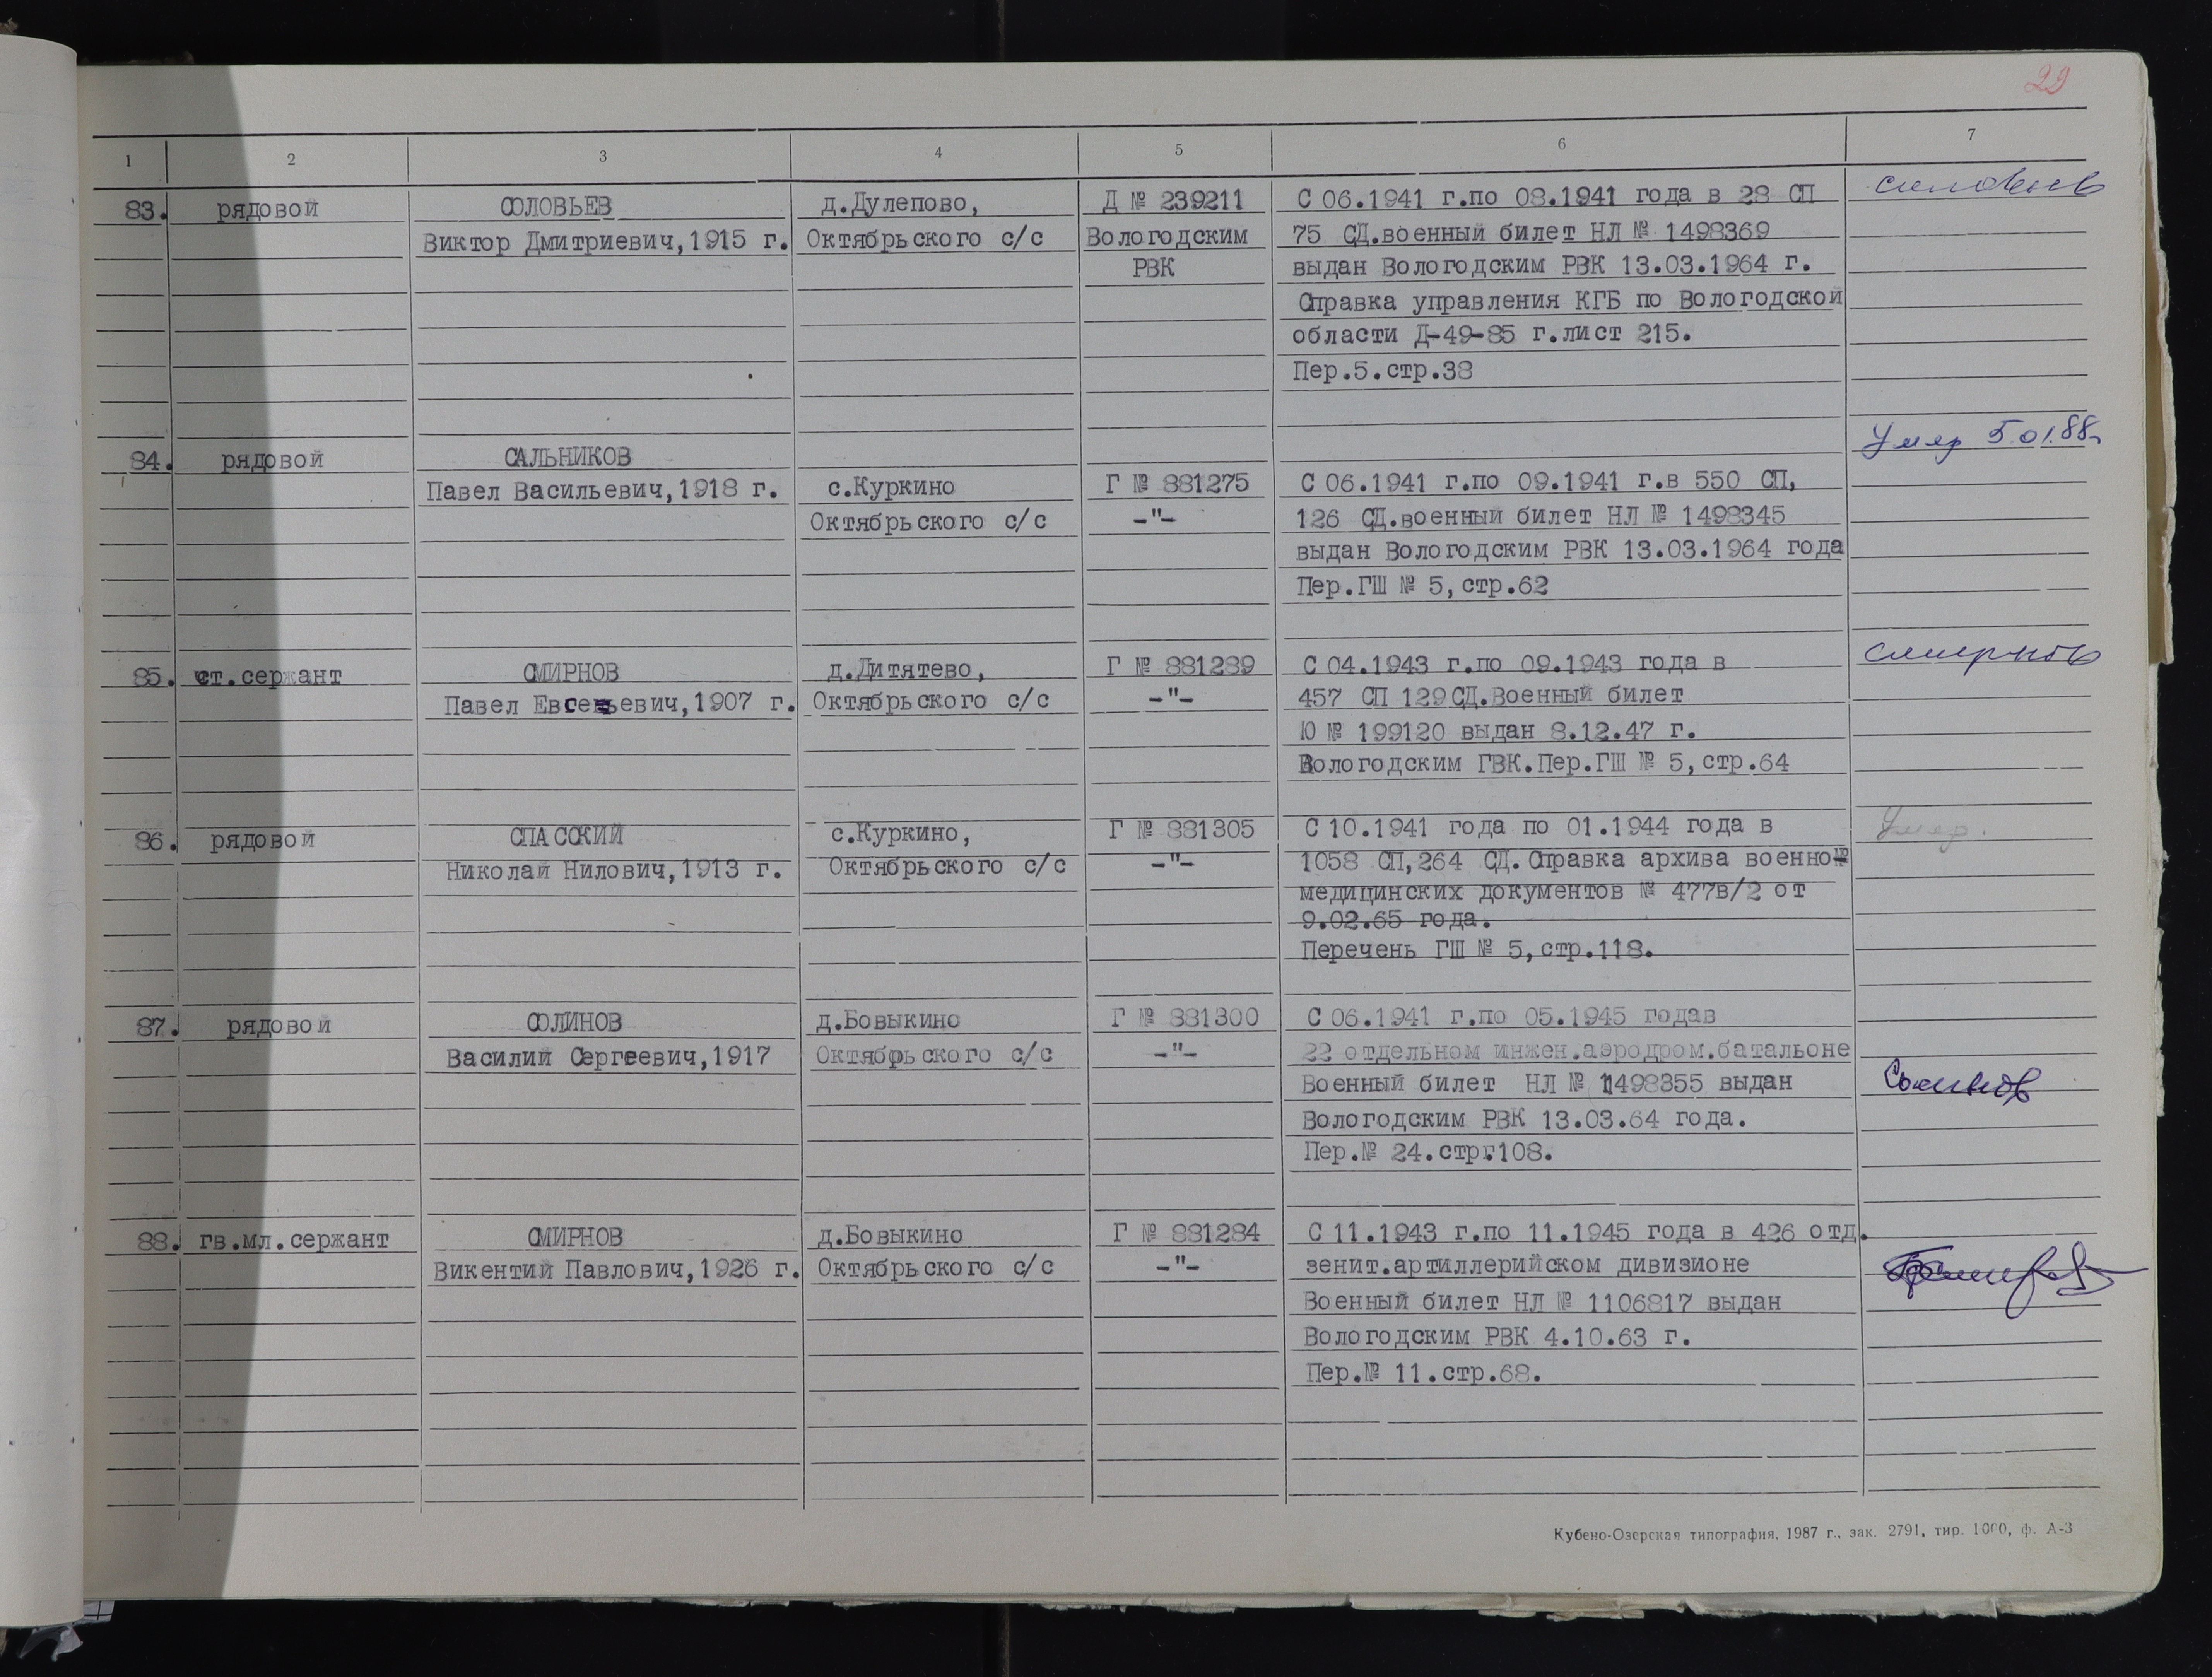 29
1 2 3 4 5 6 7
83. рядовой СОЛОВЬЕВ д.Дулепово, Д № 239211 С 06.1941 г.по 08.1941 года в 28 СП Соловьев
Виктор Дмитриевич,1915 г. Октябрьского с/с Вологодским 75 СД.военный билет НЛ № 1498369
РВК выдан Вологодским РВК 13.03.1964 г.
Справка управления КГБ по Вологодской
области Д-49-85 г.лист 215.
Пер.5.стр.38
Умер 5.01.88г
84. рядовой САЛЬНИКОВ
Павел Васильевич,1918 г. с.Куркино Г № 881275 С 06.1941 г.по 09.1941 г.в 550 СП,
Октябрьского с/с -"- 126 СД.военный билет НЛ № 1498345
выдан Вологодским РВК 13.03.1964 года
Пер.ГШ № 5,стр.62
85. ст.сержант СМИРНОВ д.Дитятево, Г № 881289 С 04.1943 г.по 09.1943 года в Смирнов
Павел Евсеньевич,1907 г. Октябрьского с/с -"- 457 СП 129 СД.Военный билет
Ю № 199120 выдан 8.12.47 г.
Вологодским ГВК.Пер.ГШ № 5,стр.64
86. рядовой СПАССКИЙ с.Куркино, Г № 881305 С 10.1941 года по 01.1944 года в Умер.
Николай Нилович,1913 г. Октябрьского с/с -"- 1058 СП,264 СД.Справка архива военно-
медицинских документов № 477в/2 от
9.02.65 года.
Перечень ГШ № 5,стр.118.
87. рядовой СОЛИНОВ д.Бовыкино Г № 881300 С 06.1941 г.по 05.1945 годав
Василий Сергеевич,1917 Октябрьского с/с -"- 22 отдельном инжен.аэродром.батальоне
Военный билет НЛ № 1498355 выдан Солинов
Вологодским РВК 13.03.64 года.
Пер.№ 24.стр.108.
88. гв.мл.сержант СМИРНОВ д.Бовыкино Г № 881284 С 11.1943 г.по 11.1945 года в 426 отд.
Викентий Павлович,1926 г. Октябрьского с/с -"- зенит.артиллерийском дивизионе
Военный билет НЛ № 1106817 выдан
Вологодским РВК 4.10.63 г.
Пер.№ 11.стр.68.
Кубено-Озерская типография, 1987 г., зак. 2791, тир. 1000, ф. А-3